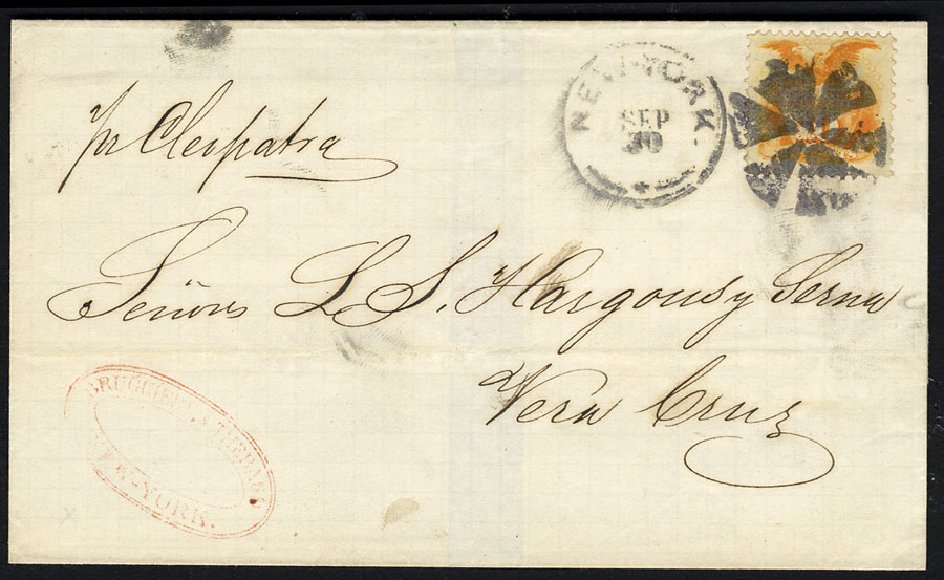 NEW-YORK.
SEP
30
pr Cleopatra
Señores L. S. Hargous y Serna
Vera Cruz
NEW-YORK.